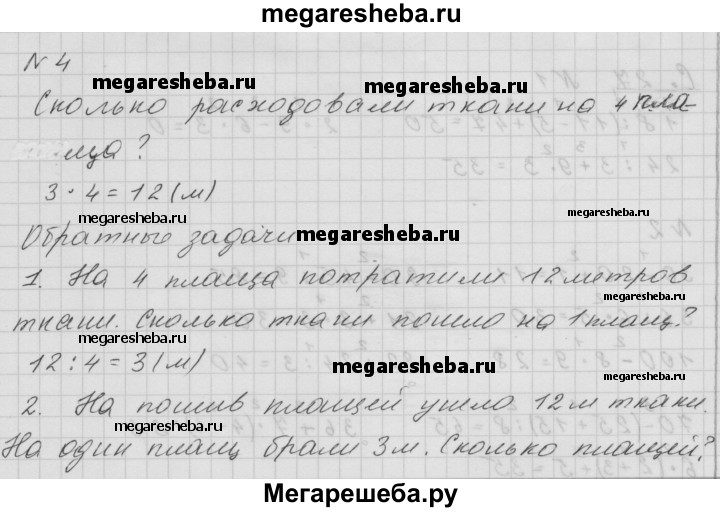 megaresheba.ru
N 4
megaresheba.ru megaresheba.ru
Сколько расходовали ткани на 4 пла-
ща?
3 · 4 = 12 (м)
megaresheba.ru megaresheba.ru
Обратные задачи megaresheba.ru
1. На 4 плаща потратили 12 метров
megaresheba.ru
ткани. Сколько ткани пошло на 1 плащ?
megaresheba.ru
12 : 4 = 3 (м)
megaresheba.ru megaresheba.ru
2. На пошив плащей ушло 12 м ткани.
megaresheba.ru
На один плащ брали 3 м. Сколько плащей?
Мегарешеба.ру